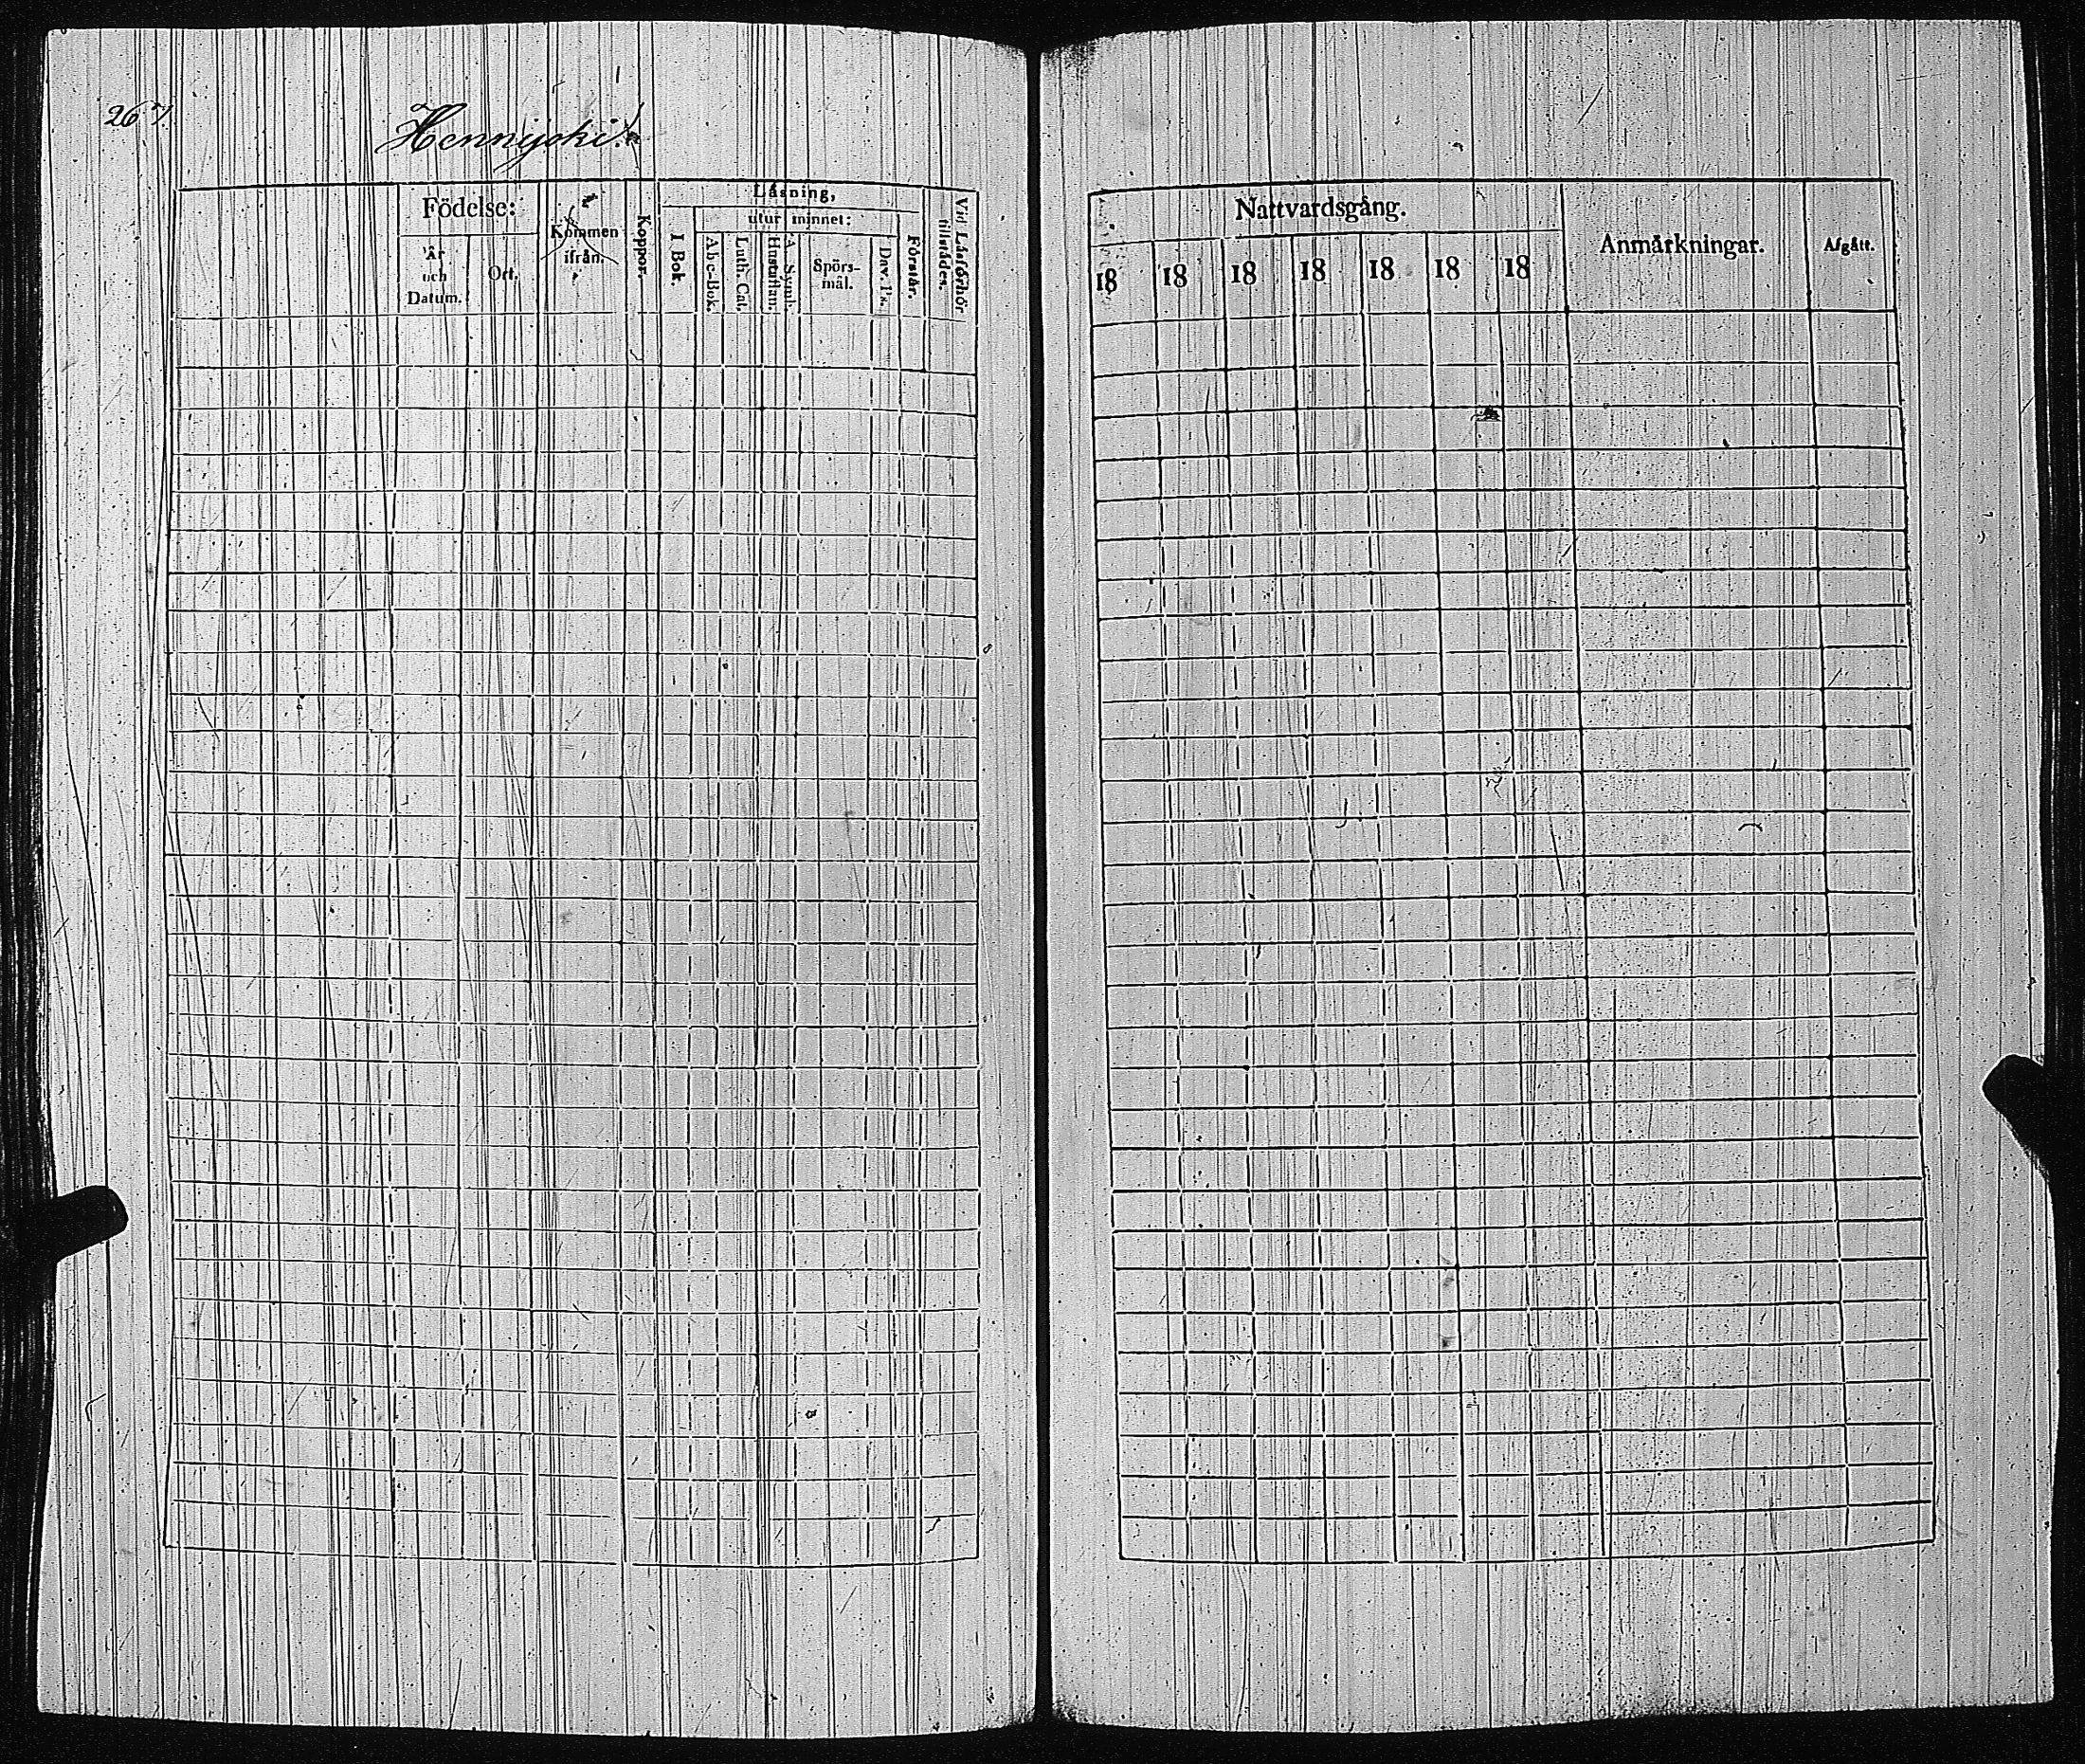 267.
Hennijoki.
Födelse:
År
och
Datum.
Ort.
Kommen
ifrån.
Koppor.
Låsning,
I Bok.
utur minnet:
Abc-Bok.
Luth. Cat.
A. Symb.
Hustaflan.
Spörs-
mål.
Dav. Ps.
Förstår.
Vid Låsförhör
tillstådes.
Nattvardsgång.
18 18 18 18 18 18 18
Anmårkningar.
Afgått.